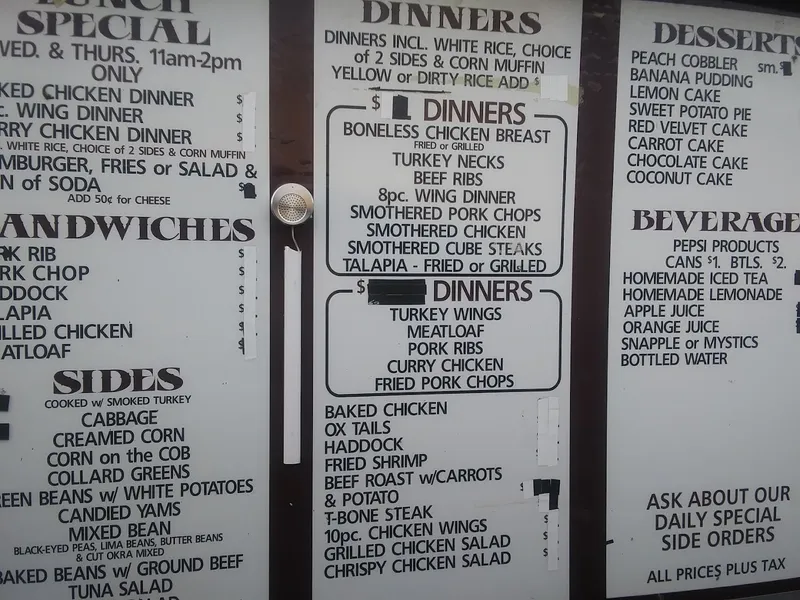 LUNCH
SPECIAL
WED. & THURS. 11am-2pm
ONLY
KED CHICKEN DINNER $
c. WING DINNER $
RRY CHICKEN DINNER $
. WHITE RICE, CHOICE of 2 SIDES & CORN MUFFIN
MBURGER, FRIES or SALAD &
N of SODA $
ADD 50¢ for CHEESE
ANDWICHES
RK RIB $
RK CHOP $
DDOCK $
LAPIA $
LLED CHICKEN $
ATLOAF $
SIDES
COOKED w/ SMOKED TURKEY
CABBAGE
CREAMED CORN
CORN on the COB
COLLARD GREENS
REEN BEANS w/ WHITE POTATOES
CANDIED YAMS
MIXED BEAN
BLACK-EYED PEAS, LIMA BEANS, BUTTER BEANS
& CUT OKRA MIXED
BAKED BEANS w/ GROUND BEEF
TUNA SALAD
DINNERS
DINNERS INCL. WHITE RICE, CHOICE
of 2 SIDES & CORN MUFFIN
YELLOW or DIRTY RICE ADD $
$ DINNERS
BONELESS CHICKEN BREAST
FRIED or GRILLED
TURKEY NECKS
BEEF RIBS
8pc. WING DINNER
SMOTHERED PORK CHOPS
SMOTHERED CHICKEN
SMOTHERED CUBE STEAKS
TALAPIA - FRIED or GRILLED
$ DINNERS
TURKEY WINGS
MEATLOAF
PORK RIBS
CURRY CHICKEN
FRIED PORK CHOPS
BAKED CHICKEN
OX TAILS
HADDOCK
FRIED SHRIMP
BEEF ROAST w/CARROTS
& POTATO $
T-BONE STEAK
10pc. CHICKEN WINGS $
GRILLED CHICKEN SALAD $
CHRISPY CHICKEN SALAD $
DESSERTS
PEACH COBBLER sm. $
BANANA PUDDING
LEMON CAKE
SWEET POTATO PIE
RED VELVET CAKE
CARROT CAKE
CHOCOLATE CAKE
COCONUT CAKE
BEVERAGE
PEPSI PRODUCTS
CANS $1. BTLS. $2.
HOMEMADE ICED TEA
HOMEMADE LEMONADE
APPLE JUICE
ORANGE JUICE
SNAPPLE or MYSTICS
BOTTLED WATER
ASK ABOUT OUR
DAILY SPECIAL
SIDE ORDERS
ALL PRICES PLUS TAX